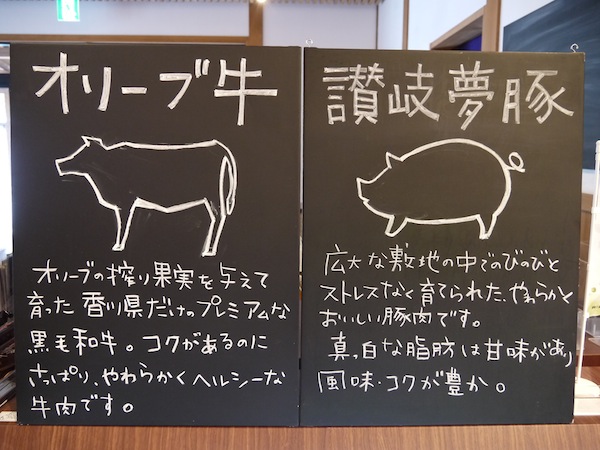 オリーブ牛
オリーブの搾り果実を与えて
育った香川県だけのプレミアムな
黒毛和牛。コクがあるのに
さっぱり、やわらかくヘルシーな
牛肉です。
讃岐夢豚
広大な敷地の中でのびのびと
ストレスなく育てられた、やわらかく
おいしい豚肉です。
真っ白な脂肪は甘味があり
風味・コクが豊か。